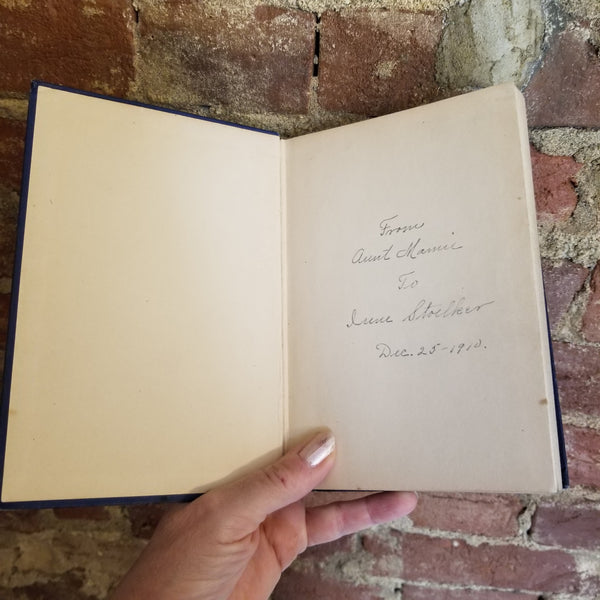 From
Aunt Mamie
To
Irene Stoelker
Dec. 25-1910.